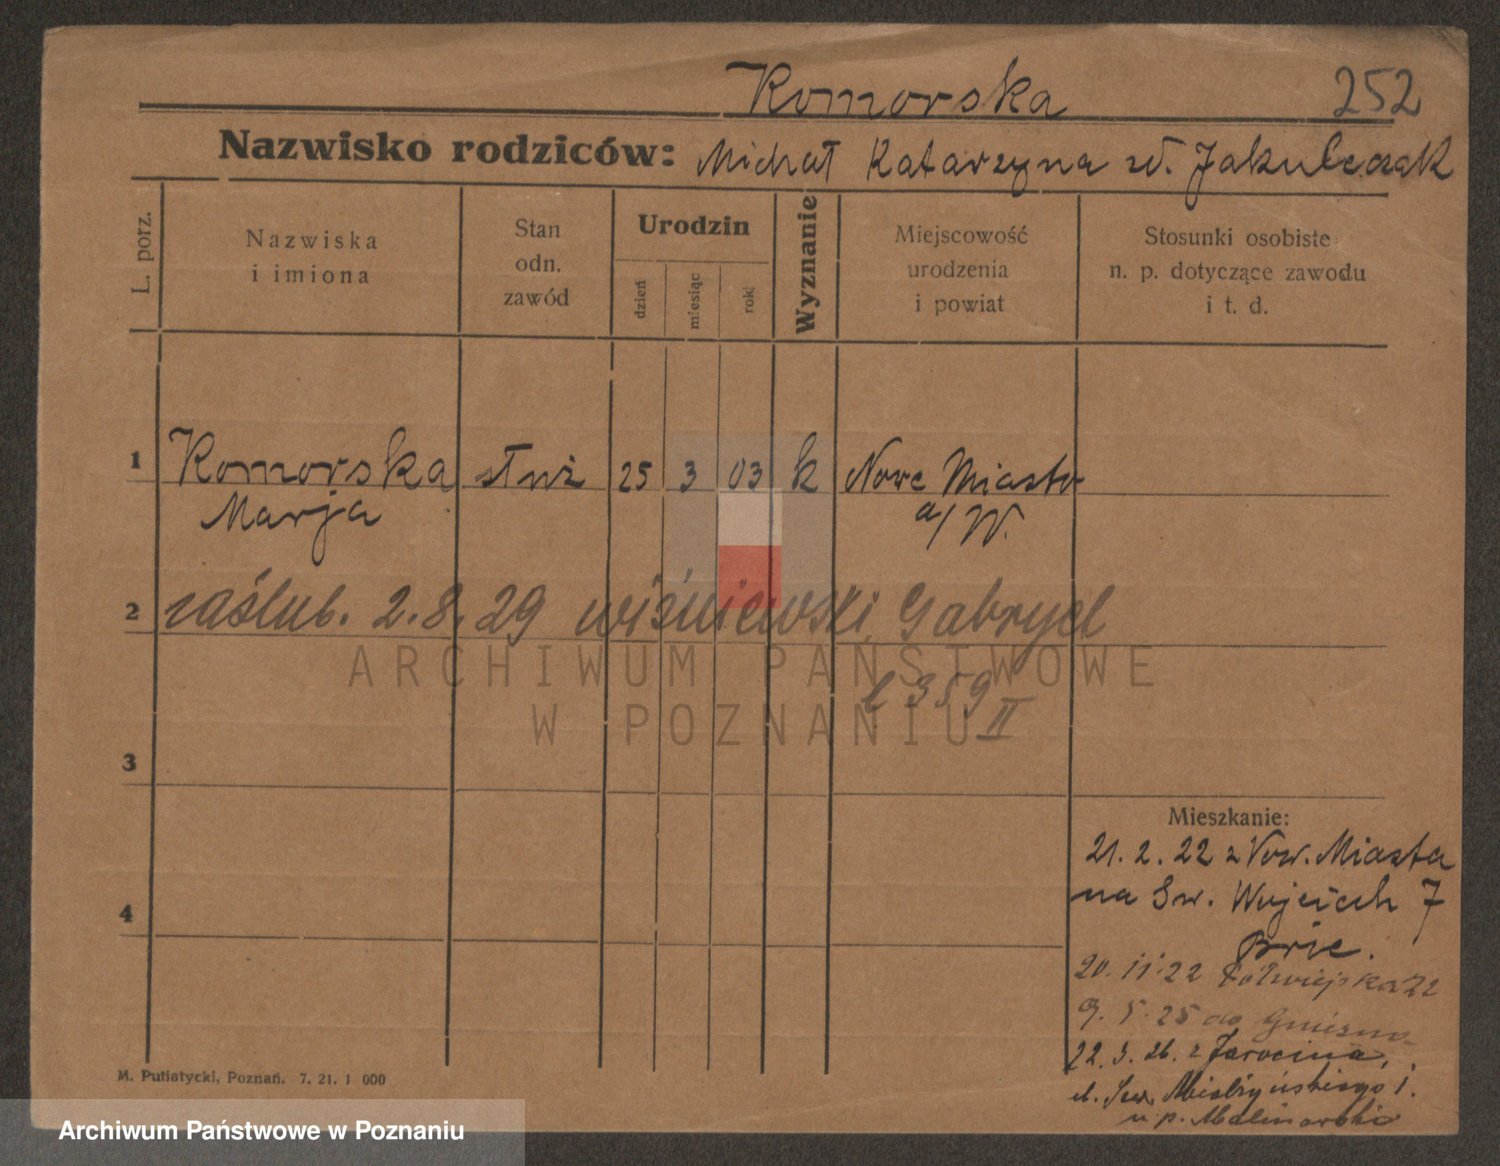 Komorska 252
Nazwisko rodziców: Michał Katarzyna zd. Jakubczak
L. porz.
Nazwiska
i imiona
Stan
odn.
zawód
Urodzin
dzień
miesiąc
rok
Wyznanie
Miejscowość
urodzenia
i powiat
Stosunki osobiste
n. p. dotyczące zawodu
i t. d.
1 Komorska służ 25 3 03 k Nowe Miasto
Marja a/W.
2 zaślub. 2.8.29 Wiśniewski Gabryel
l 359
II
ARCHIWUM PAŃSTWOWE
W POZNANIU
3
4
Mieszkanie:
21. 2. 22 z Now. Miasta
na Św. Wojciech 7
20. 11. 22 Półwiejska 22
9. 5. 25 do Gniezna
22. 3. 26. z Jarocina,
u p.
M. Putiatycki, Poznań. 7. 21. 1 000
Archiwum Państwowe w Poznaniu